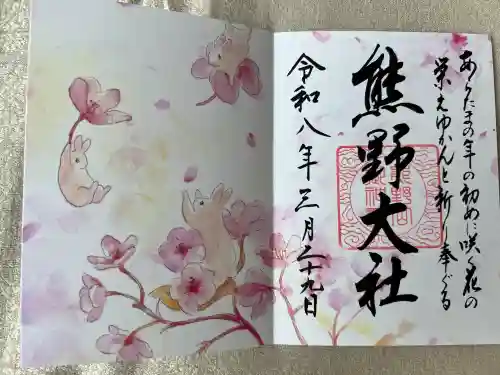 あらたまの年の初めに咲く花の
栄えゆかんと祈り奉ぐる
熊野大社
令和八年三月二十九日